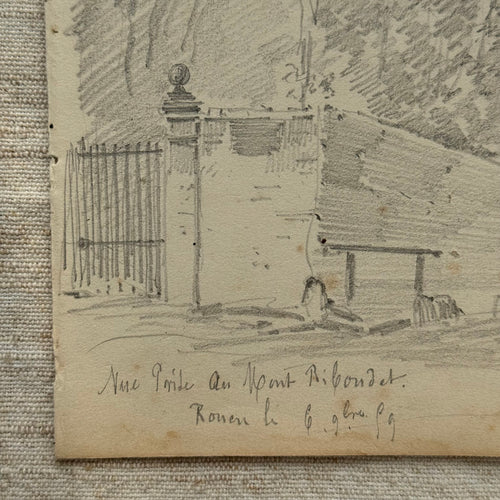 Vue Prise au Mont Riboudet.
Rouen le 6. 9bre. 59